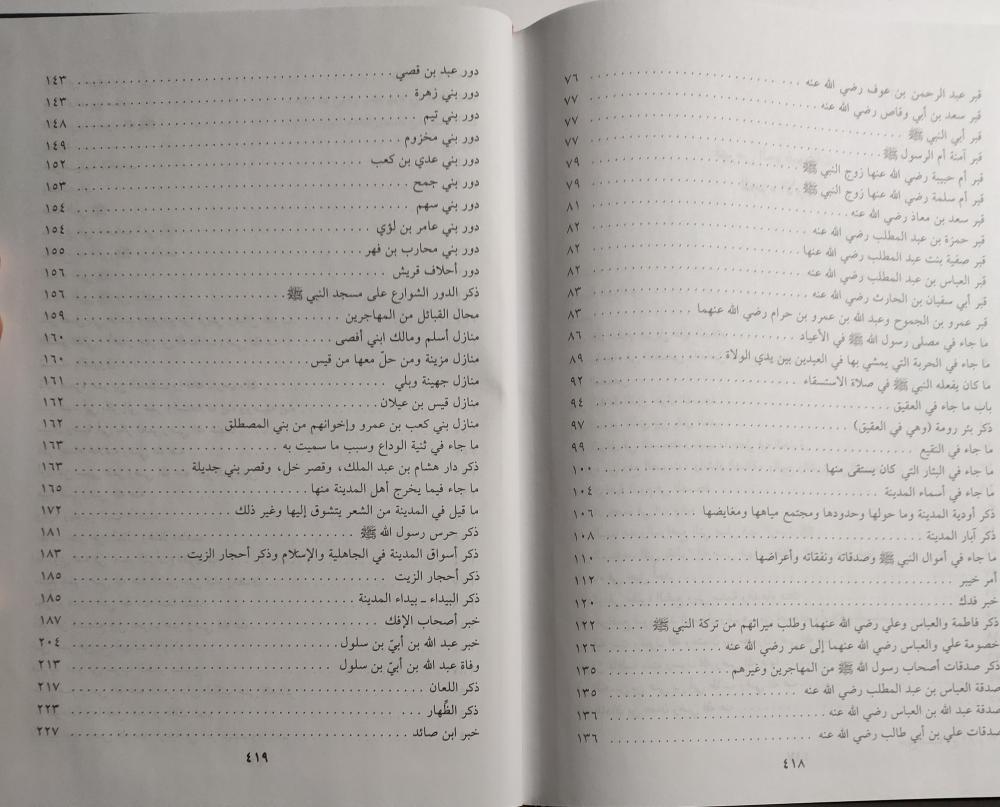 قبر عبد الرحمن بن عوف رضي الله عنه ........ ٧٦
قبر سعد بن أبي وقاص رضي الله عنه ........ ٧٧
قبر أبي النبي ﷺ ........ ٧٧
قبر آمنة أم الرسول ﷺ ........ ٧٧
قبر أم حبيبة رضي الله عنها زوج النبي ﷺ ........ ٧٩
قبر أم سلمة رضي الله عنها زوج النبي ﷺ ........ ٧٩
قبر سعد بن معاذ رضي الله عنه ........ ٨١
قبر حمزة بن عبد المطلب رضي الله عنه ........ ٨٢
قبر صفية بنت عبد المطلب رضي الله عنها ........ ٨٢
قبر العباس بن عبد المطلب رضي الله عنه ........ ٨٢
قبر أبي سفيان بن الحارث رضي الله عنه ........ ٨٣
قبر عمرو بن الجموح وعبد الله بن عمرو بن حرام رضي الله عنهما ........ ٨٣
ما جاء في مصلى رسول الله ﷺ في الأعياد ........ ٨٦
ما جاء في الحربة التي يمشي بها في العيدين بين يدي الولاة ........ ٨٩
ما كان يفعله النبي ﷺ في صلاة الاستسقاء ........ ٩٢
باب ما جاء في العقيق ........ ٩٤
ذكر بئر رومة (وهي في العقيق) ........ ٩٧
ما جاء في النقيع ........ ٩٩
ما جاء في البئار التي كان يستقى منها ........ ١٠٠
ما جاء في أسماء المدينة ........ ١٠٤
ذكر أودية المدينة وما حولها وحدودها ومجتمع مياهها ومغايضها ........ ١٠٦
ذكر آبار المدينة ........ ١٠٨
ما جاء في أموال النبي ﷺ وصدقاته ونفقاته وأعراضها ........ ١١٠
أمر خيبر ........ ١١٢
خبر فدك ........ ١٢٠
ذكر فاطمة والعباس وعلي رضي الله عنهما وطلب ميراثهم من تركة النبي ﷺ ........ ١٢٢
خصومة علي والعباس رضي الله عنهما إلى عمر رضي الله عنه ........ ١٢٦
ذكر صدقات أصحاب رسول الله ﷺ من المهاجرين وغيرهم ........ ١٣٥
صدقة العباس بن عبد المطلب رضي الله عنه ........ ١٣٥
صدقة عبد الله بن العباس رضي الله عنه ........ ١٣٦
صدقات علي بن أبي طالب رضي الله عنه ........ ١٣٦
٤١٨
دور عبد بن قصي ........ ١٤٣
دور بني زهرة ........ ١٤٣
دور بني تيم ........ ١٤٨
دور بني مخزوم ........ ١٤٩
دور بني عدي بن كعب ........ ١٥٢
دور بني جمح ........ ١٥٣
دور بني سهم ........ ١٥٤
دور بني عامر بن لؤي ........ ١٥٤
دور بني محارب بن فهر ........ ١٥٥
دور أحلاف قريش ........ ١٥٦
ذكر الدور الشوارع على مسجد النبي ﷺ ........ ١٥٦
محال القبائل من المهاجرين ........ ١٥٩
منازل أسلم ومالك ابني أفصى ........ ١٦٠
منازل مزينة ومن حلّ معها من قيس ........ ١٦٠
منازل جهينة وبلي ........ ١٦١
منازل قيس بن عيلان ........ ١٦٢
منازل بني كعب بن عمرو وإخوانهم من بني المصطلق ........ ١٦٢
ما جاء في ثنية الوداع وسبب ما سميت به ........ ١٦٣
ذكر دار هشام بن عبد الملك، وقصر خل، وقصر بني جديلة ........ ١٦٣
ما جاء فيما يخرج أهل المدينة منها ........ ١٦٥
ما قيل في المدينة من الشعر يتشوق إليها وغير ذلك ........ ١٧٢
ذكر حرس رسول الله ﷺ ........ ١٨١
ذكر أسواق المدينة في الجاهلية والإسلام وذكر أحجار الزيت ........ ١٨٣
ذكر أحجار الزيت ........ ١٨٥
ذكر البيداء ـ بيداء المدينة ........ ١٨٥
خبر أصحاب الإفك ........ ١٨٧
خبر عبد الله بن أبيّ بن سلول ........ ٢٠٤
وفاة عبد الله بن أبيّ بن سلول ........ ٢١٣
ذكر اللعان ........ ٢١٧
ذكر الظِّهار ........ ٢٢٣
خبر ابن صائد ........ ٢٢٧
٤١٩